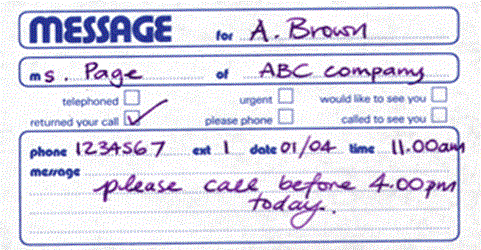 MESSAGE for A. Brown
ms. Page of ABC company
telephoned urgent would like to see you
returned your call please phone called to see you
phone 1234567 ext 1 date 01/04 time 11.00am
message
please call before 4.00pm
today.